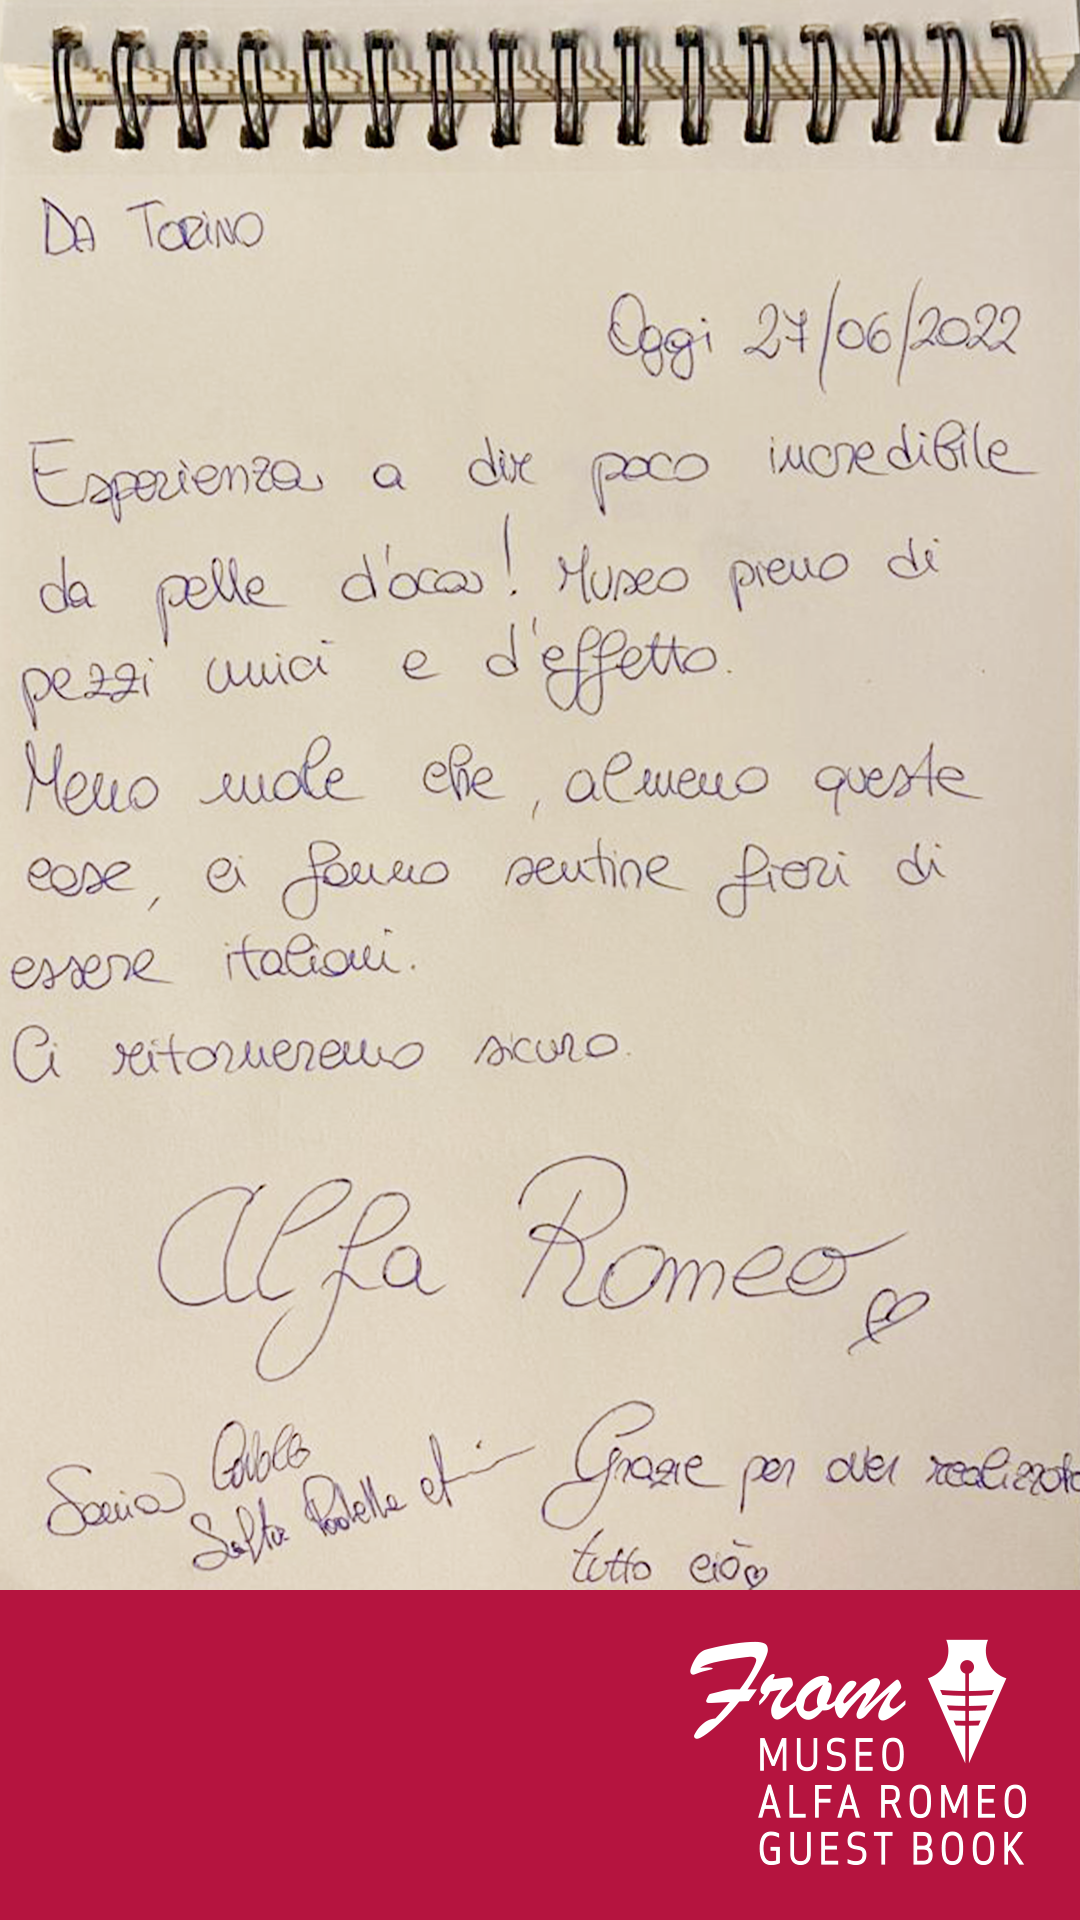 DA TORINO
Oggi 27/06/2022
Esperienza a dir poco incredibile
da pelle d'oca! Museo pieno di
pezzi unici e d'effetto.
Meno male che, almeno queste
cose, ci fanno sentire fieri di
essere italiani.
Ci ritorneremo sicuro.
Alfa Romeo
Sonia
Grazie per aver realizzato
tutto ciò
From
MUSEO
ALFA ROMEO
GUEST BOOK